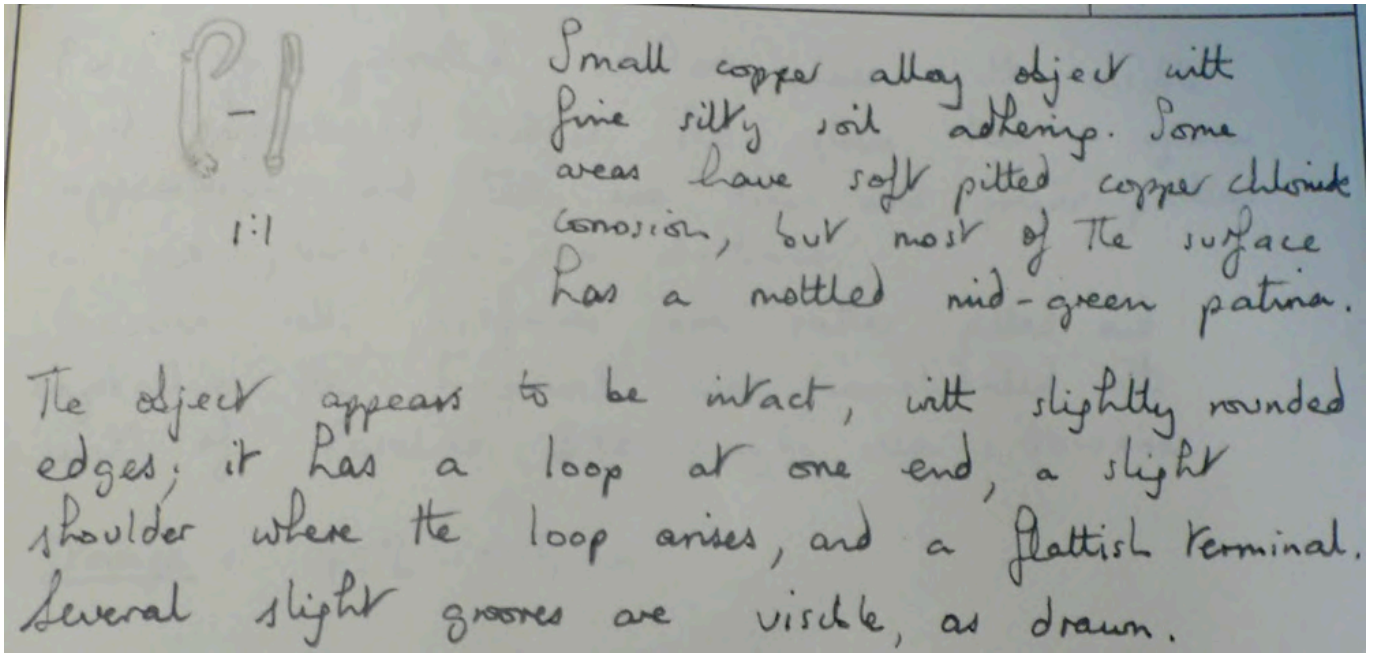 Small copper alloy object with
fine silty soil adhering. Some
areas have soft pitted copper chloride
corrosion, but most of the surface
has a mottled mid-green patina.
1:1
The object appears to be intact, with slightly rounded
edges; it has a loop at one end, a slight
shoulder where the loop arises, and a flattish terminal.
Several slight grooves are visible, as drawn.